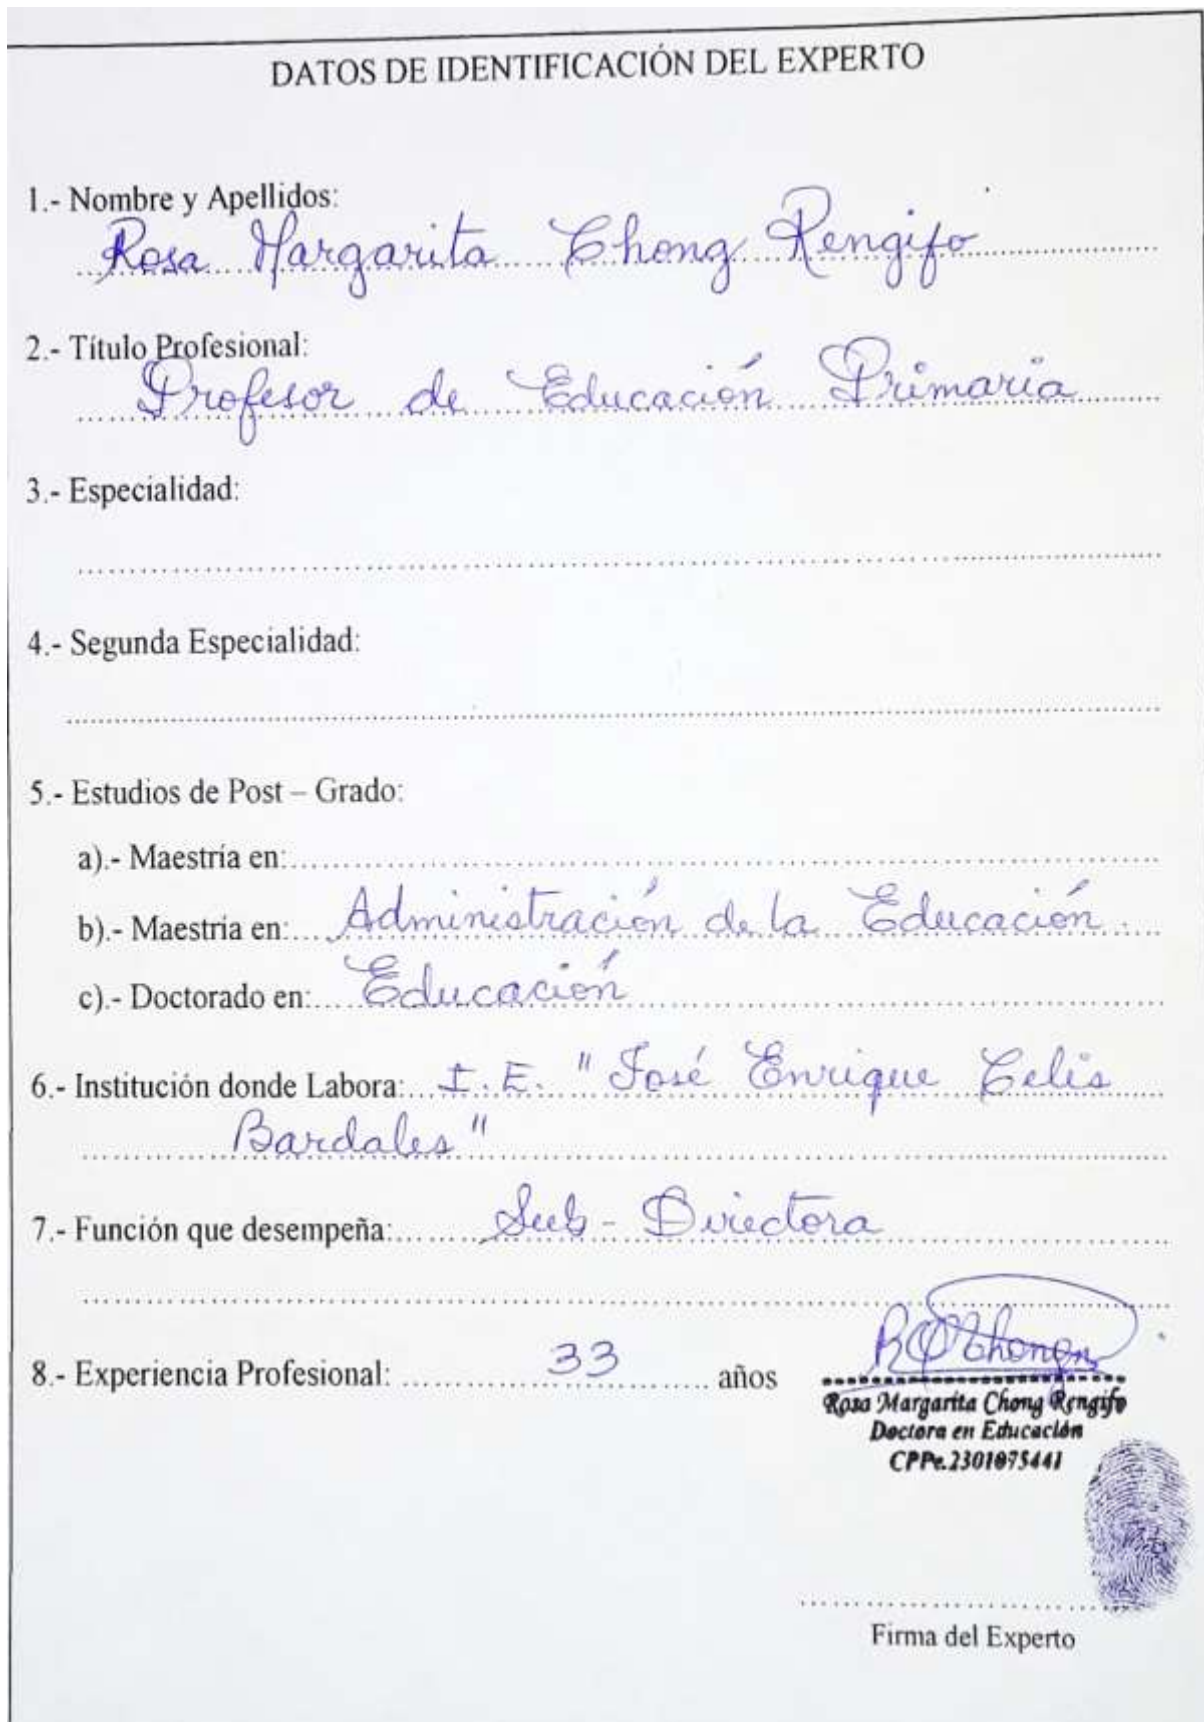 DATOS DE IDENTIFICACIÓN DEL EXPERTO
1.- Nombre y Apellidos:
Rosa Margarita Chong Rengifo
2.- Título Profesional:
Profesor de Educación Primaria
3.- Especialidad:
4.- Segunda Especialidad:
5.- Estudios de Post – Grado:
a).- Maestría en:
b).- Maestría en: Administración de la Educación.
c).- Doctorado en: Educación
6.- Institución donde Labora: I.E. "José Enrique Celis
Bardales"
7.- Función que desempeña: Sub - Directora
8.- Experiencia Profesional: 33 años
Rosa Margarita Chong Rengifo
Doctora en Educación
CPPe.2301075441
Firma del Experto